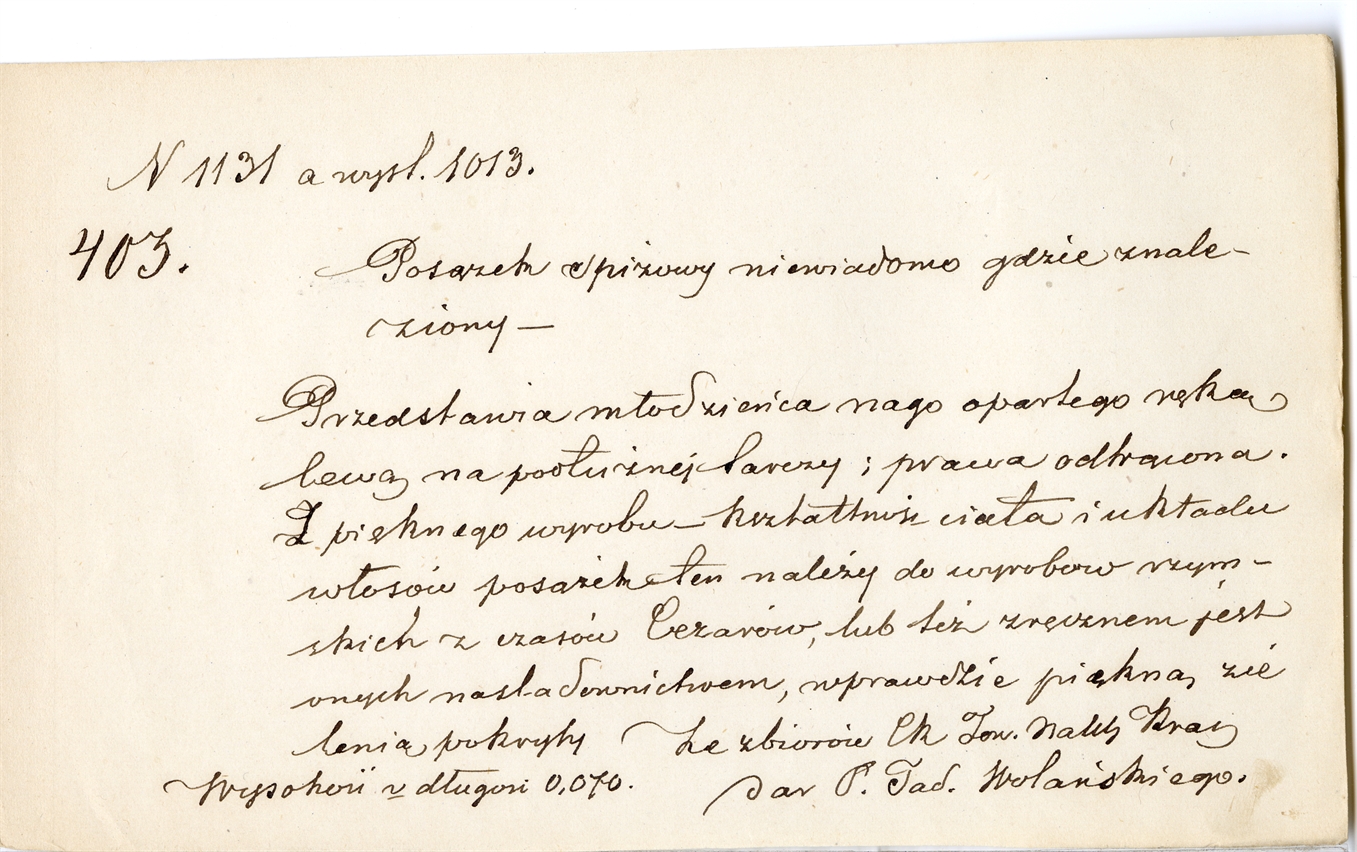 N 1131 a wysł. 1013.
403.
Posązek spiżowy niewiadomo gdzie znale-
ziony —
Przedstawia młodzieńca nago opartego ręką
lewą na podłużnéj tarczy; prawa odtrącona.
Z pięknego wyrobu — kształtność ciała i układu
włosów posążek ten należy do wyrobow rzym-
skich z czasów Cezarów, lub też zręcznem jest
onych nasladownictwem, wprawdzie piękną zie
lenią pokryty Ze zbiorów Ck Tow. Nauk Krak
Wysokość v długości 0,070. Dar P. Tad. Wolańskiego.